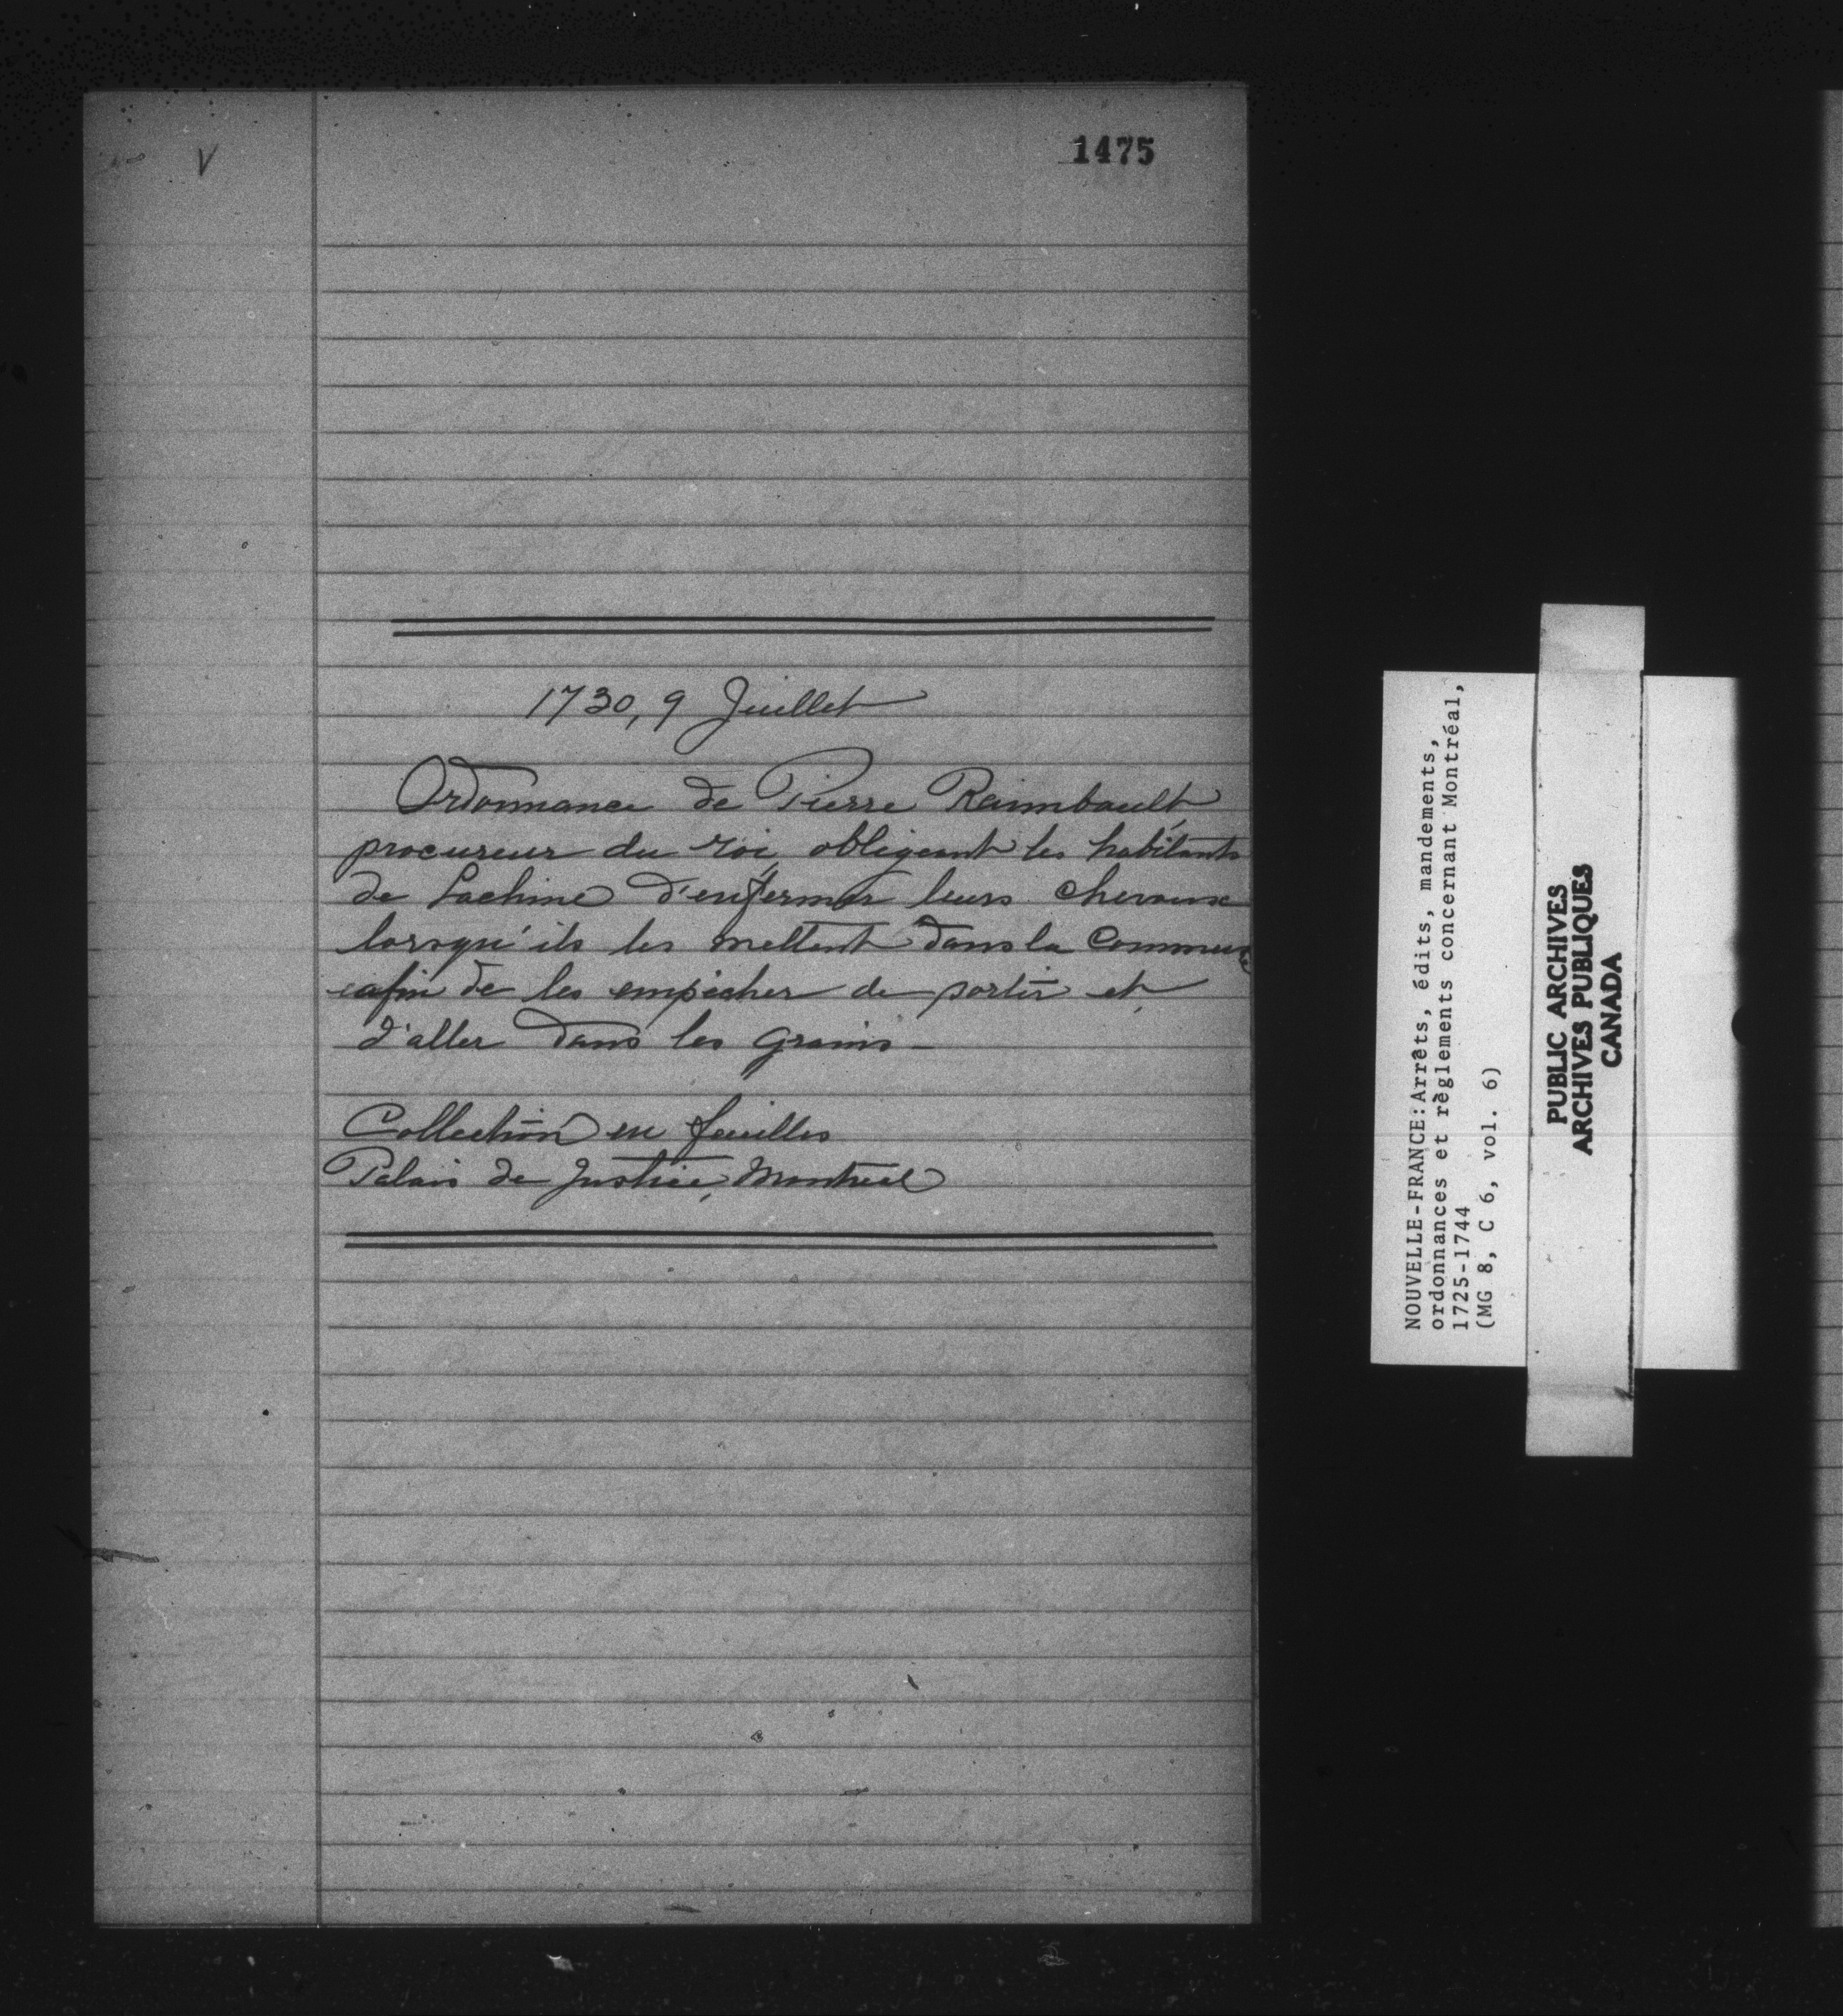 V
1475
1730, 9 Juillet
Ordonnance de Pierre Raimbault,
procureur du roi, obligeant les habitants
de Lachine d'enfermer leurs chevaux
lorsqu'ils les mettent dans la Commune
afin de les empêcher de sortir et
d'aller dans les grains -
Collection en feuilles
Palais de Justice, Montréal
NOUVELLE-FRANCE: Arrêts, édits, mandements,
ordonnances et règlements concernant Montréal,
1725-1744
(MG 8, C 6, vol. 6)
PUBLIC ARCHIVES
ARCHIVES PUBLIQUES
CANADA